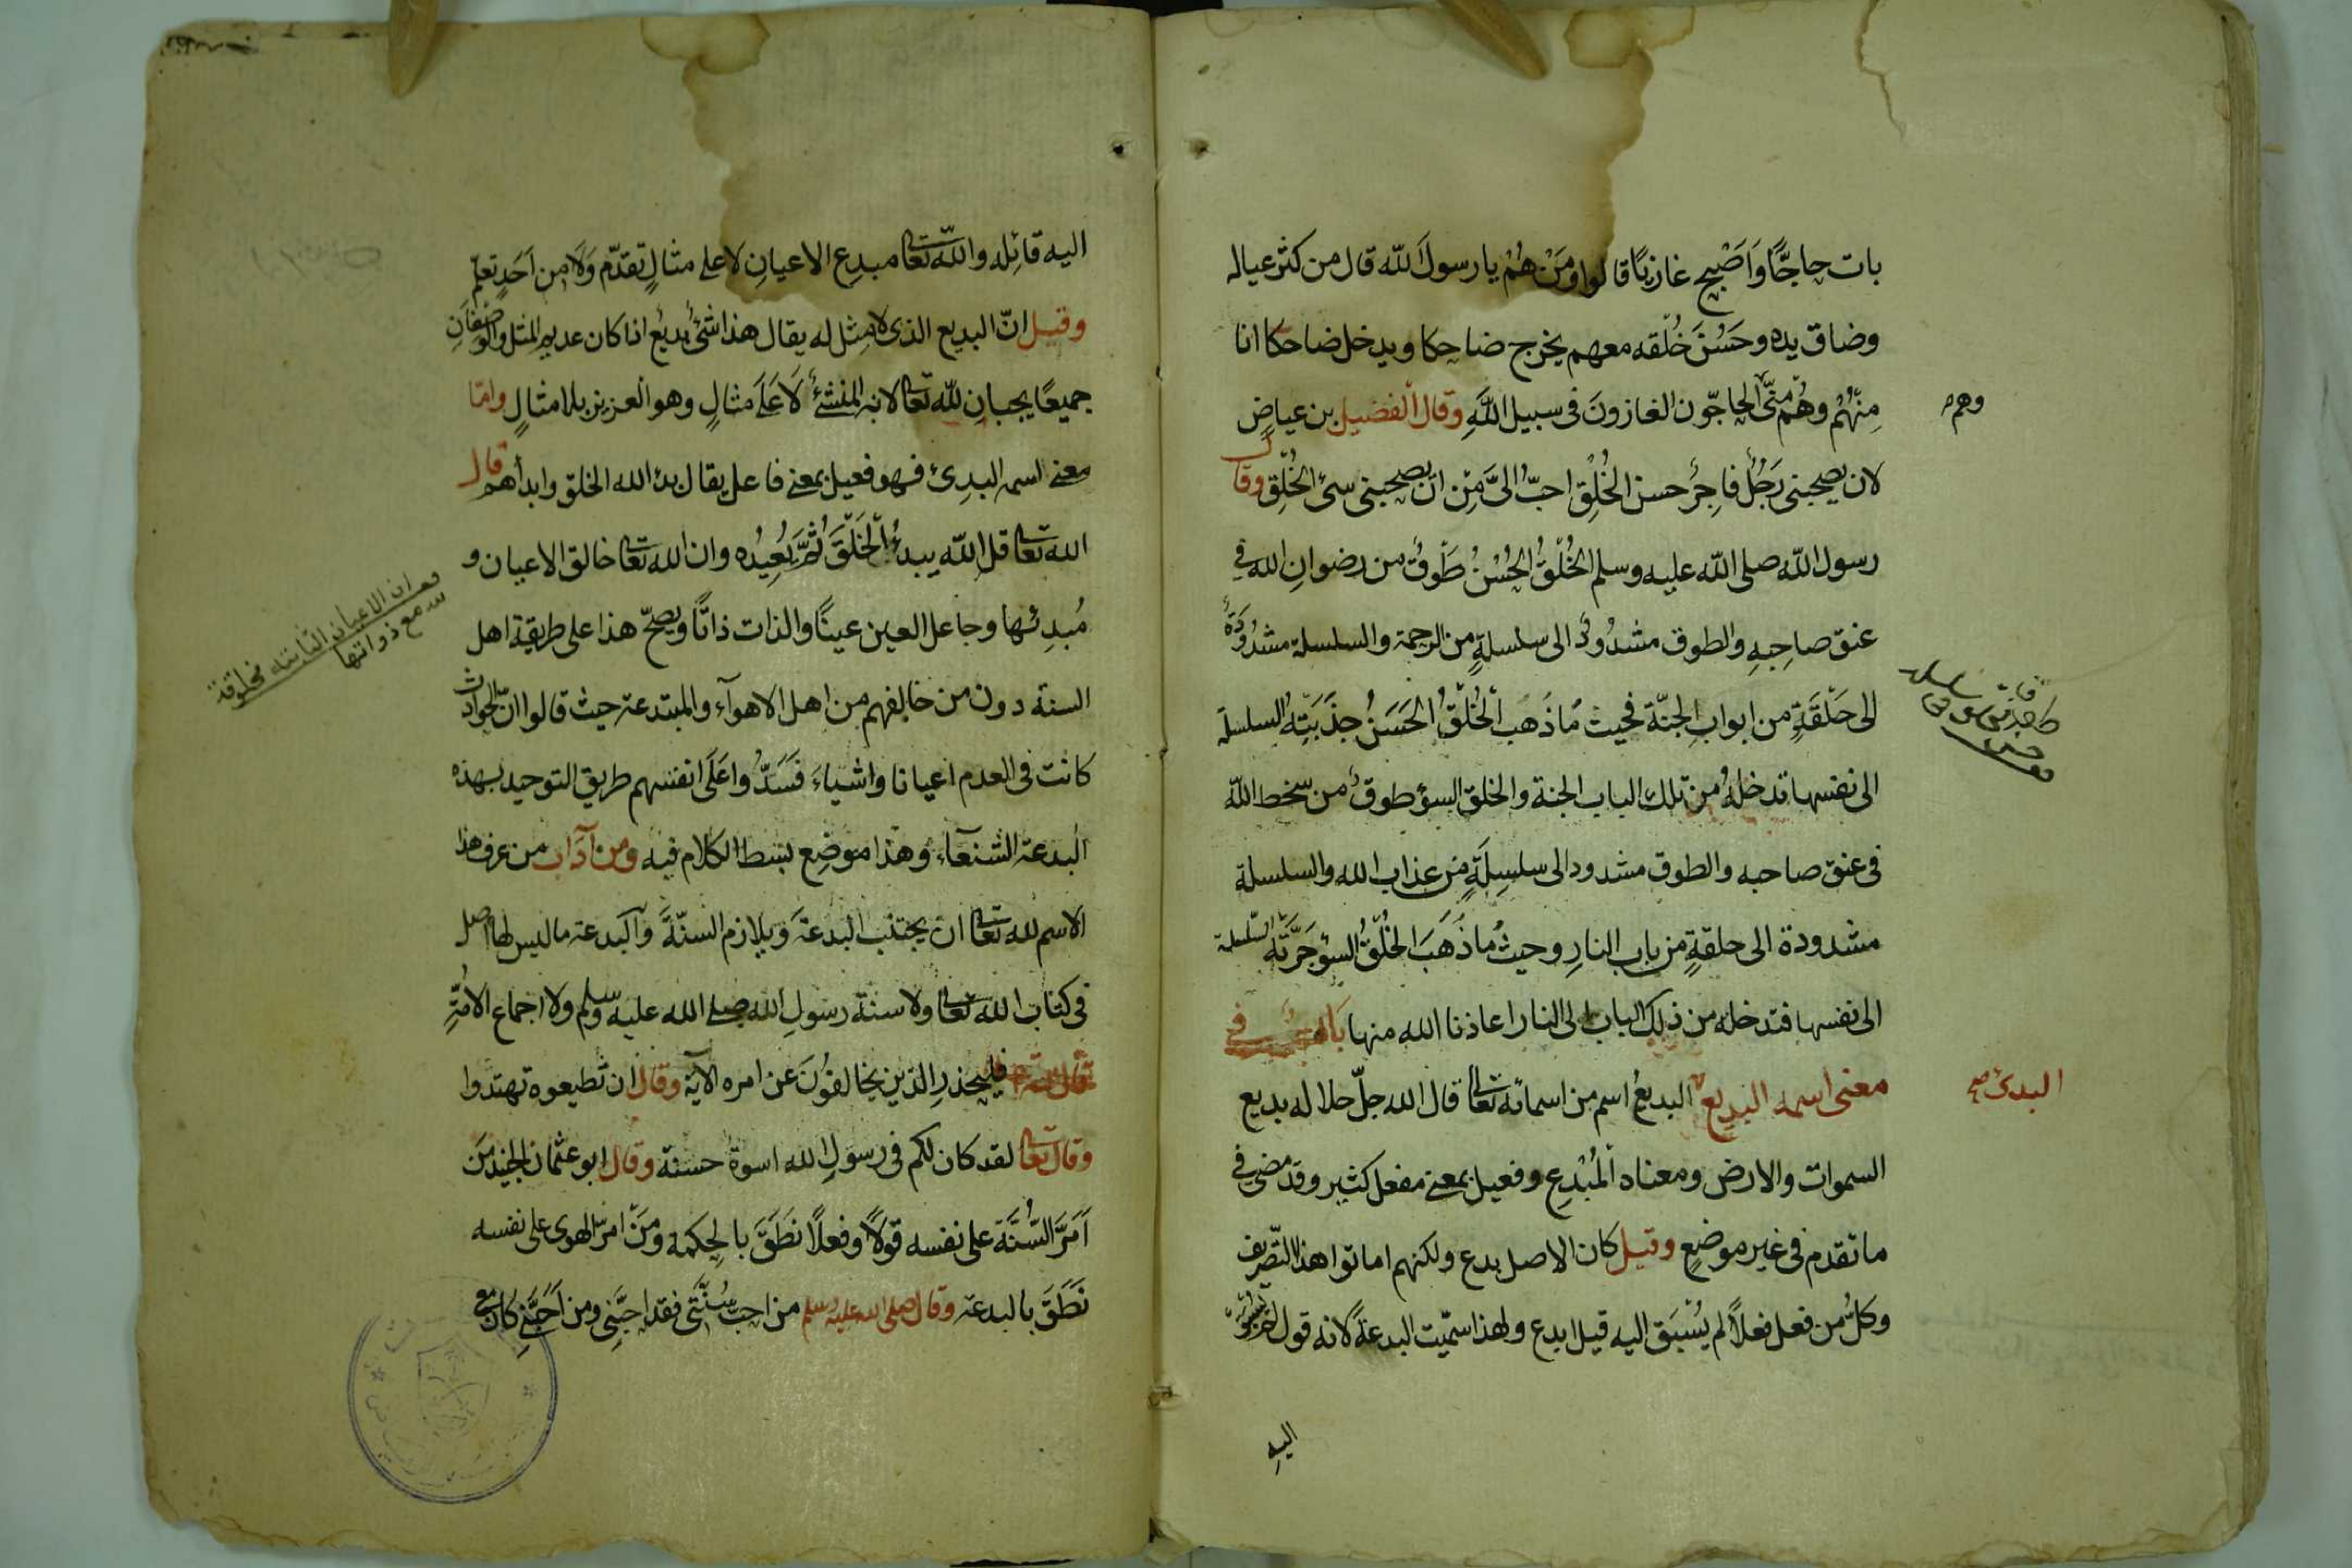 بات حاجًّا وَاَصْبح غازيًا قالوا ومَنْ هُمْ يا رسولَ الله قال من كثر عياله
وضاق يده وحَسُنَ خُلْقه معهم يخرج ضاحكا ويدخل ضاحكا انا
مِنْهُمْ وهُمْ مِنّى الحاجّون الغازونَ فى سبيل اللهِ وقال الفضيل بن عياض
وهم
لان يصحبنى رَجُلٌ فاجِرٌ حسن الخُلُق احبّ الىَّ مِن ان يصحبنى سىّ الخُلُق وقال
رسول الله صلى الله عليه وسلم الخُلُقُ الحُسْنُ طَوقٌ من رضوانِ الله فى
عنق صاحِبِهِ والطوق مشدُودٌ الى سلسلةٍ من الرحمة والسلسلة مشدُودَةٌ
الى حَلْقَةٍ من ابوابِ الجنّة فحيث مَا ذَهب الخُلْقُ الحَسَنُ جذَبَتِهُ السلسلة
الى نفسها تدخلهُ من تلك الباب الجنة والخلق السؤ طوقٌ من سخط الله
فى عنق صاحبه والطوق مشدود الى سلسِلَةٍ من عذاب الله والسلسلة
مشدودة الى حلقةٍ من باب النارِ وحيثُ ما ذَهَبَ الخُلْقُ السؤ جَرَّتْه السّلسلة
الى نفسها فتدخله من ذلك الباب الى النار اعاذنا الله منها باب فى
معنى اسمه البديع البديعُ اسم من اسمائه تعالى قال الله جلّ جلاله بديع
البدئ صح
السموات والارض ومعناه المُبْدِع وفعيل بمعنى مفعل كثير وقد مضى فى
ما تقدم فى غير موضعٍ وقيل كان الاصل بدع ولكنهم اماتوا هذا التصريف
وكلُّ من فعل فعلاً لم يُسْبَق اليه قيل ابدع ولهذا سمّيت البدعةً لانه قول لم يُسبَق
اليهِ
اليه قائِله والله تعالى مبدِع الاعيانِ لا على مثالٍ تقدّم وَلَا من اَحَدٍ تعلم
وقيل انّ البديع الذى لا مِثل له يقال هذا شئ بديع اذا كان عديم المثل والوصفانِ
جميعًا يجبانِ لله تعالى لانه المنشئ لَا عَلَى مثالٍ وهو العزيز بلا مثالٍ وامّا
معنى اسمه البدِئ فهو فعيل بمعنى فاعل يقال بدئ الله الخلق وابدأهم قال
الله تعالى قل الله يبدءُ الخَلْقَ ثُمَّ يُعِيدُه وان الله تعالى خالق الاعيان و
مُبدِئها وجاعل العين عينًا والذات ذاتًا ويصحّ هذا على طريقة اهل
ان الاعيان الثابتة مخلوقة
مع ذواتها
السنة دون من خالفهم من اهل الاهوآء والمبتدعة حيث قالوا انّ الحوادث
كانت فى العدم اعيانا واشياءَ فَسَدُّوا عَلَى انفسهم طريق التوحيد بهذه
البدعة الشنعآء وهذا موضِع بسط الكلام فيه ومن آداب من عرف هذا
الاسم لله تعالى ان يجتنب البدعَة ويلازم السنّةَ والبدعة ما ليس لها اصل
فى كتاب الله تعالى ولا سنة رسولِ الله صلى الله عليه وسلم ولا اجماع الامّةِ
فليحذرِ الذين يخالفوُنَ عن امره الآية وقال ان تطيعوه تهتدوا
وقال تعالى لقد كان لكم فى رسولِ الله اسوة حسنة وقال ابو عثمان الجنيد مَن
اَمَرَّ السُّنَّة على نفسه قوْلاً وفعلاً نَطَقَ بالحِكمه ومَنْ امرّ الهوى على نفسه
نَطَقَ بالبدعة وقال صلى الله عليه وسلم من احب سُنّتى فقد احبّنى ومن اَحَبَّنى كان مع